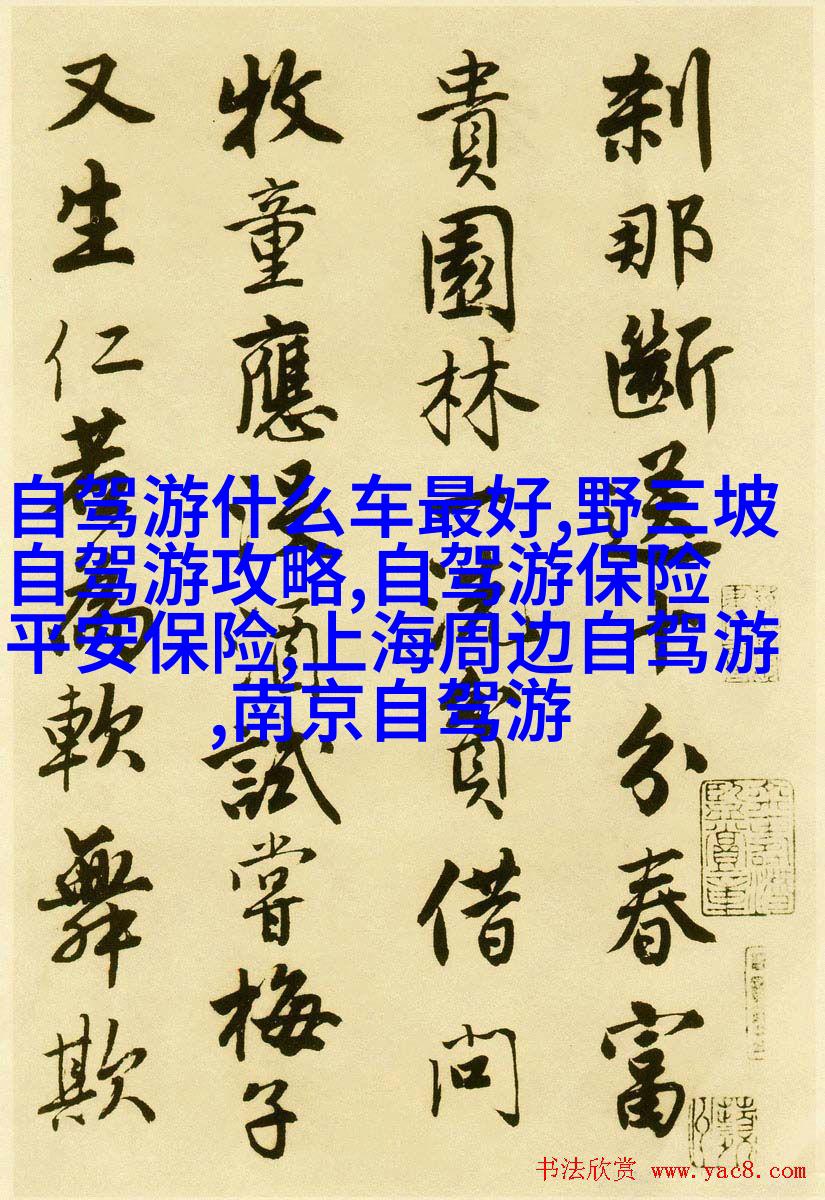 刹那斷送十分春富
貴園林一洗貧借問
牧童應没酒試嘗梅子
又生仁若為軟舞欺
自驾游什么车最好,野三坡
自驾游攻略,自驾游保险
平安保险,上海周边自驾游
,南京自驾游
书法欣赏 www.yac8.com